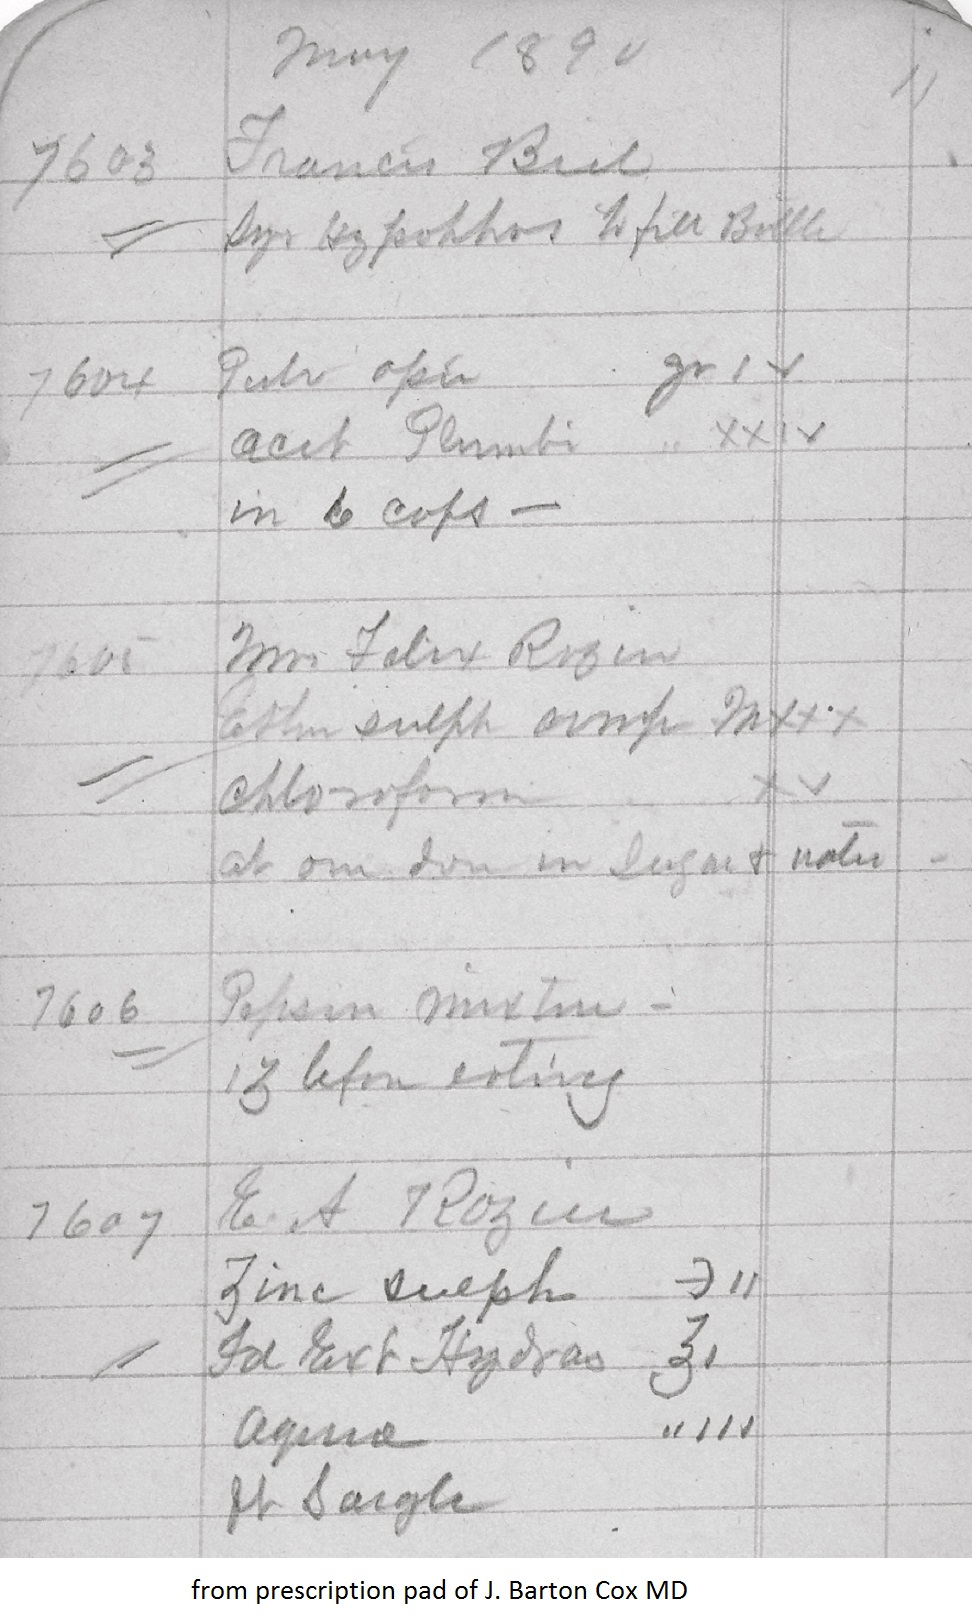 May 1890
11
7603 Francis Biel
Syr Hypophhos to fill Bottle
7604 Pulv opii gr iv
acet Plumbi " xxiv
in 6 caps —
7605 Mrs Felix Rozier
Ether sulph comp M xxx
chloroform xv
at one dose in Sugar & water -
7606 Pepsin mixture -
1ʒ before eating
7607 E. A Rozier
Zinc sulph ℈ ii
Fd Ext Hydras ℥ i
Aqua " iii
ft Gargle
from prescription pad of J. Barton Cox MD